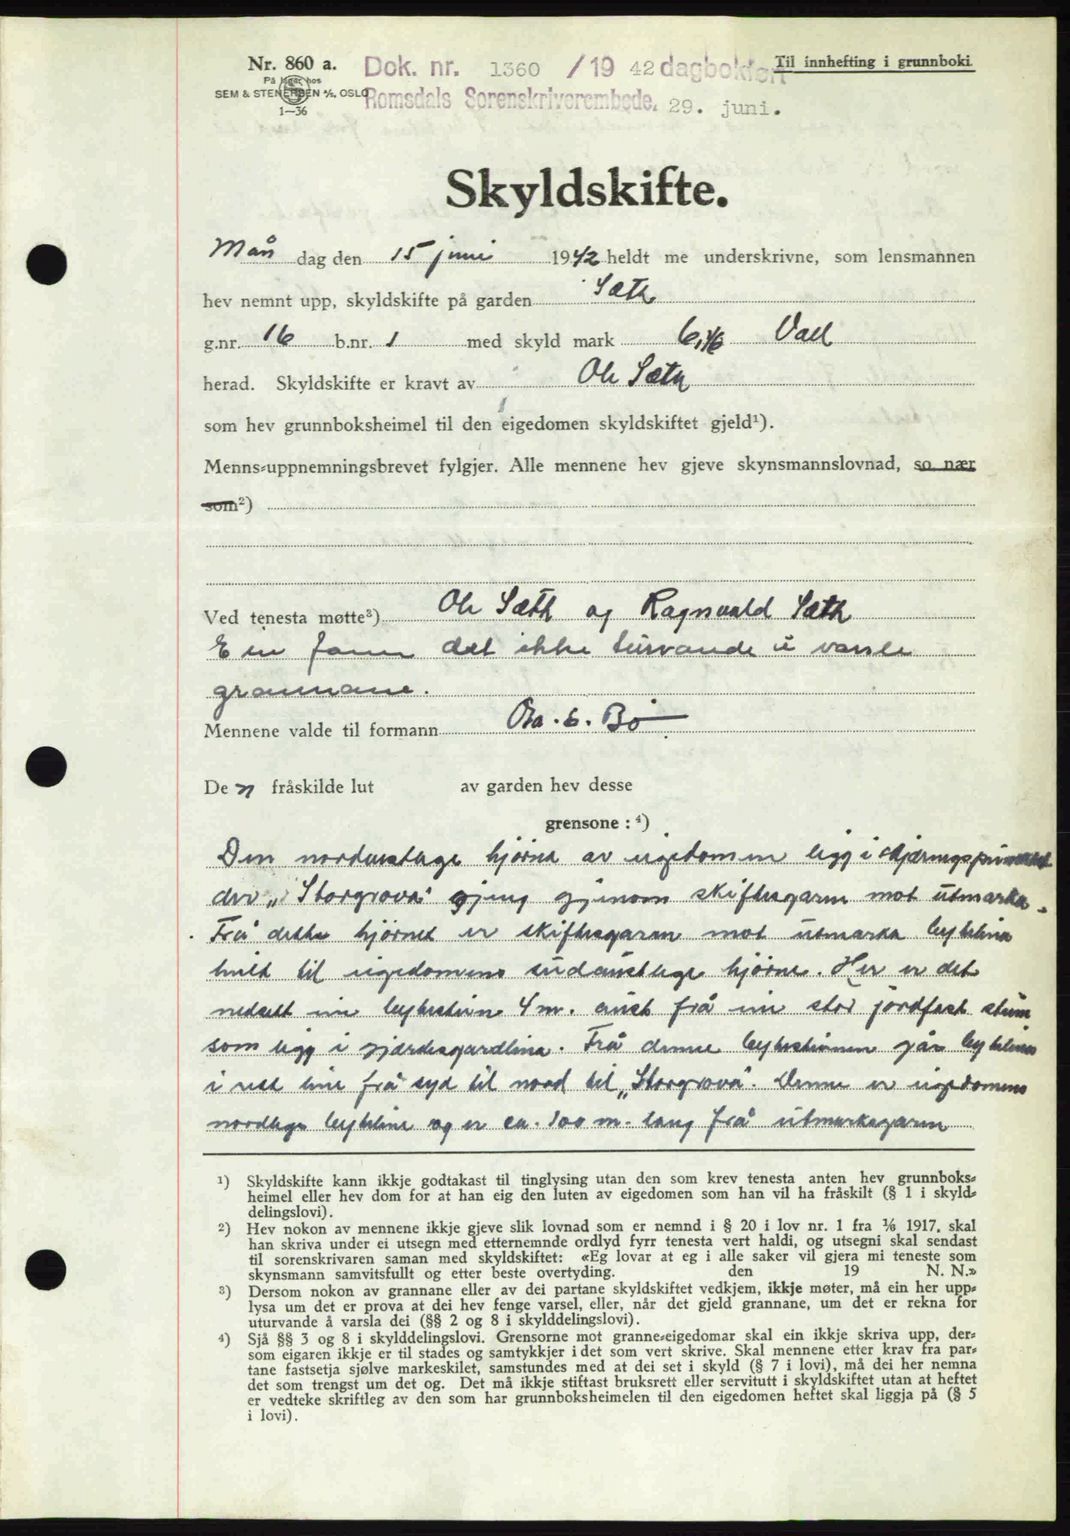 Nr. 860 a.
På lager hos
SEM & STENERSEN A/S, OSLO
1—36
Dok. nr. 1360 / 19 42 dagbokført
Romsdals Sorenskriverembede, 29. juni.
Til innhefting i grunnboki.
Skyldskifte.
Mån dag den 15 juni 1942 heldt me underskrivne, som lensmannen
hev nemnt upp, skyldskifte på garden Sæth
g.nr. 16 b.nr. 1 med skyld mark 6,46 Vall
herad. Skyldskifte er kravt av Ole Sæth
som hev grunnboksheimel til den eigedomen skyldskiftet gjeld¹).
Menns-uppnemningsbrevet fylgjer. Alle mennene hev gjeve skynsmannslovnad, so nær
som²)
Ved tenesta møtte³) Ole Sæth og Ragnvald Sæth
Ein fann det ikke turvande å varsle
grannane.
Mennene valde til formann Ola. E. Bø
De n fråskilde lut av garden hev desse
grensone : ⁴)
Den nordaustlege hjørne av eigedomen ligg i skjæringspunktet
der „Storgrova“ gjeng gjenom skiftesgaren mot utmarka.
Frå dette hjørnet er skiftesgaren mot utmarka byteline
heilt til eigedomens sudaustlege hjørne. Her er det
nedsett ein bytestein 4 m. aust frå ein stor jordfast stein
som ligg i gjærdesgardlina. Frå denne bytesteinen går bytelina
i rett line frå syd til nord til „Storgrova“. Denne er eigedomens
nordlege byteline og er ca. 100 m. lang frå utmarksgaren
¹) Skyldskifte kann ikkje godtakast til tinglysing utan den som krev tenesta anten hev grunnboks-
heimel eller hev dom for at han eig den luten av eigedomen som han vil ha fråskilt (§ 1 i skyld-
delingslovi).
²) Hev nokon av mennene ikkje gjeve slik lovnad som er nemnd i § 20 i lov nr. 1 fra 1/6 1917, skal
han skriva under ei utsegn med etternemnde ordlyd fyrr tenesta vert haldi, og utsegni skal sendast
til sorenskrivaren saman med skyldskiftet: «Eg lovar at eg i alle saker vil gjera mi teneste som
skynsmann samvitsfullt og etter beste overtyding. den 19 N. N.»
³) Dersom nokon av grannane eller av dei partane skyldskiftet vedkjem, ikkje møter, må ein her upp-
lysa um det er prova at dei hev fenge varsel, eller, når det gjeld grannane, um det er rekna for
uturvande å varsla dei (§§ 2 og 8 i skylddelingslovi).
⁴) Sjå §§ 3 og 8 i skylddelingslovi. Grensorne mot granne-eigedomar skal ein ikkje skriva upp, der-
som eigaren ikkje er til stades og samtykkjer i det som vert skrive. Skal mennene etter krav fra par-
tane fastsetja sjølve markeskilet, samstundes med at dei set i skyld (§ 7 i lovi), må dei her nemna
det som trengst um det og. Det må ikkje stiftast bruksrett eller servitutt i skyldskiftet utan at heftet
er vedteke skriftleg av den som har grunnboksheimelen til den eigedomen heftet skal liggja på (§ 5
i lovi).